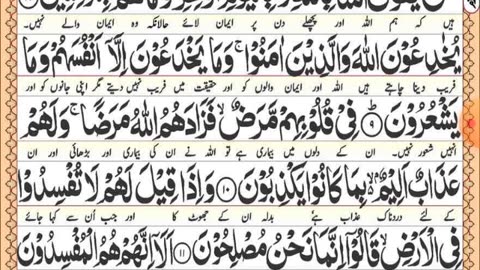 ہیں کہ ہم اللہ اور پچھلے دن پر ایمان لائے حالانکہ وہ ایمان والے نہیں۔
يُخٰدِعُوْنَ اللّٰهَ وَالَّذِيْنَ اٰمَنُوْا ۚ وَمَا يَخْدَعُوْنَ اِلَّاۤ اَنْفُسَهُمْ وَمَا
فریب دینا چاہتے ہیں اللہ اور ایمان والوں کو اور حقیقت میں فریب نہیں دیتے مگر اپنی جانوں کو اور
يَشْعُرُوْنَ ؕ ۹ فِيْ قُلُوْبِهِمْ مَّرَضٌ ۙ فَزَادَهُمُ اللّٰهُ مَرَضًا ۚ وَلَهُمْ
انہیں شعور نہیں۔ ان کے دلوں میں بیماری ہے تو اللہ نے ان کی بیماری اور بڑھائی اور ان
عَذَابٌ اَلِيْمٌۢ ۙ بِمَا كَانُوْا يَكْذِبُوْنَ ۱۰ وَاِذَا قِيْلَ لَهُمْ لَا تُفْسِدُوْا
کے لئے دردناک عذاب ہے بدلہ ان کے جھوٹ کا اور جب اُن سے کہا جائے
فِي الْاَرْضِ ۙ قَالُوْۤا اِنَّمَا نَحْنُ مُصْلِحُوْنَ ۱۱ اَلَاۤ اِنَّهُمْ هُمُ الْمُفْسِدُوْنَ